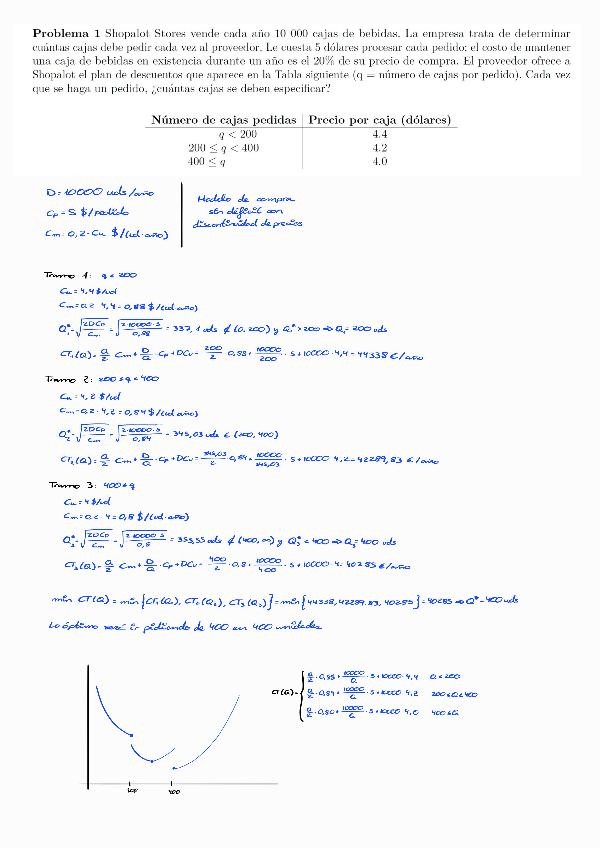 Problema 1 Shopalot Stores vende cada año 10 000 cajas de bebidas. La empresa trata de determinar
cuántas cajas debe pedir cada vez al proveedor. Le cuesta 5 dólares procesar cada pedido; el costo de mantener
una caja de bebidas en existencia durante un año es el 20% de su precio de compra. El proveedor ofrece a
Shopalot el plan de descuentos que aparece en la Tabla siguiente (q = número de cajas por pedido). Cada vez
que se haga un pedido, ¿cuántas cajas se deben especificar?
Número de cajas pedidas Precio por caja (dólares)
q < 200 4.4
200 ≤ q < 400 4.2
400 ≤ q 4.0
D = 10000 uds/año
Cp = 5 $/pedido
Cm = 0,2 · Cu $/(ud·año)
Modelo de compra
sin déficit con
discontinuidad de precios
Tramo 1: q < 200
Cu = 4,4 $/ud
Cm = 0,2 · 4,4 = 0,88 $/(ud·año)
Q₁* = √(2DCp/Cm) = √(2·10000·5/0,88) = 337,1 uds ∉ (0, 200) y Q₁* > 200 ⇒ Q₁ = 200 uds
CT₁(Q) = Q/2 · Cm + D/Q · Cp + DCu = 200/2 · 0,88 + 10000/200 · 5 + 10000 · 4,4 = 44338 €/año
Tramo 2: 200 ≤ q < 400
Cu = 4,2 $/ud
Cm = 0,2 · 4,2 = 0,84 $/(ud·año)
Q₂* = √(2DCp/Cm) = √(2·10000·5/0,84) = 345,03 uds ∈ (200, 400)
CT₂(Q) = Q/2 · Cm + D/Q · Cp + DCu = 345,03/2 · 0,84 + 10000/345,03 · 5 + 10000 · 4,2 = 42289,83 €/año
Tramo 3: 400 ≤ q
Cu = 4 $/ud
Cm = 0,2 · 4 = 0,8 $/(ud·año)
Q₃* = √(2DCp/Cm) = √(2·10000·5/0,8) = 353,55 uds ∉ (400, ∞) y Q₃* < 400 ⇒ Q₃ = 400 uds
CT₃(Q) = Q/2 · Cm + D/Q · Cp + DCu = 400/2 · 0,8 + 10000/400 · 5 + 10000 · 4 = 40285 €/año
min CT(Q) = min{CT₁(Q₁), CT₂(Q₂), CT₃(Q₃)} = min{44338, 42289.83, 40285} = 40285 ⇒ Q* = 400 uds
Lo óptimo será ir pidiendo de 400 en 400 unidades
CT(Q) = { Q/2 · 0,88 + 10000/Q · 5 + 10000 · 4,4 Q < 200
Q/2 · 0,84 + 10000/Q · 5 + 10000 · 4,2 200 ≤ Q < 400
Q/2 · 0,80 + 10000/Q · 5 + 10000 · 4,0 400 ≤ Q
200 400